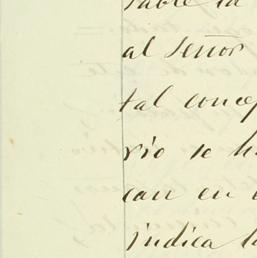 al Señor
tal concep
rio se h
can en
indica l